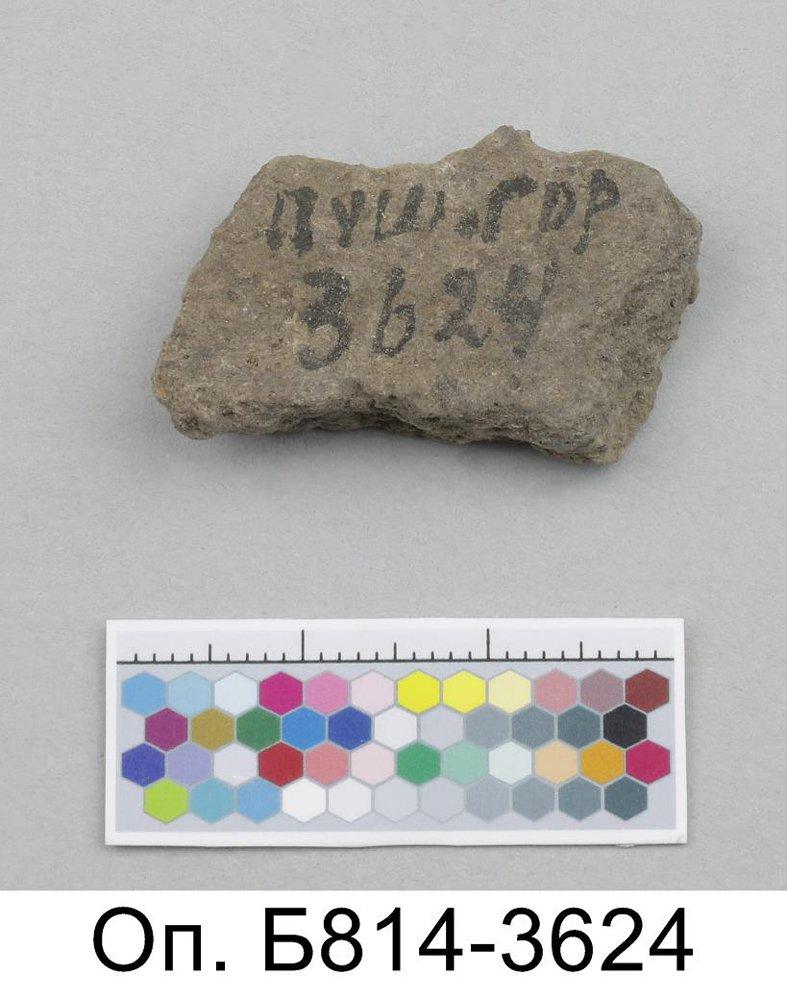 ПУШ.ГОР
3624
Оп. Б814-3624